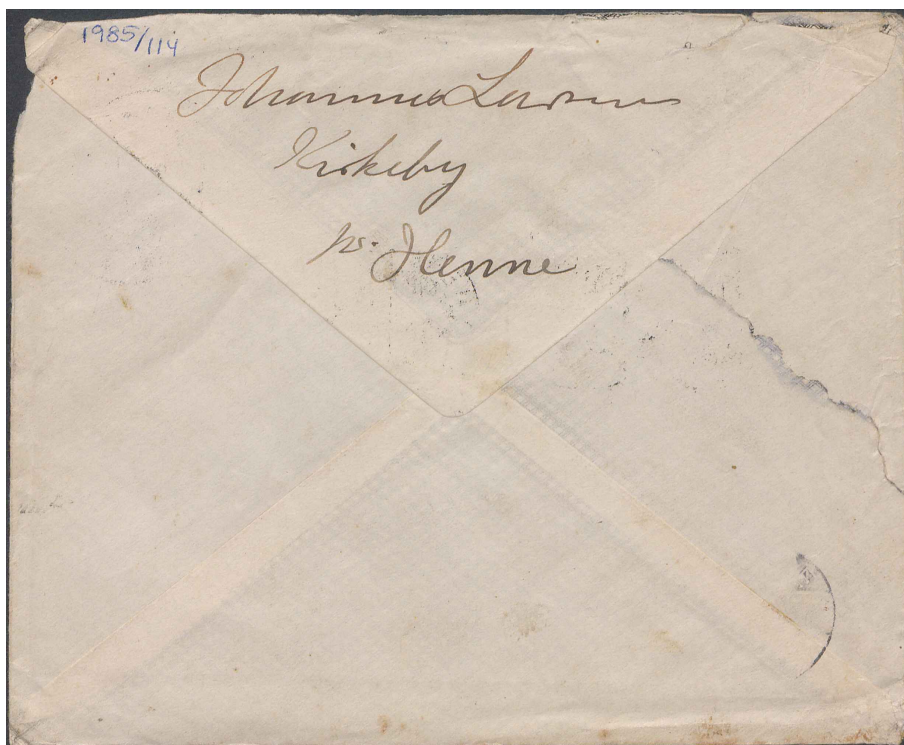 1985/114
Johannes Larsen
Kirkeby
pr. Henne